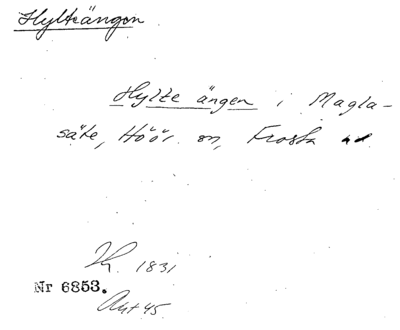 Hylteängen
Hylte ängen i Magla-
säte, Höör sn, Frosta
1831
Nr 6853.
Avt 45